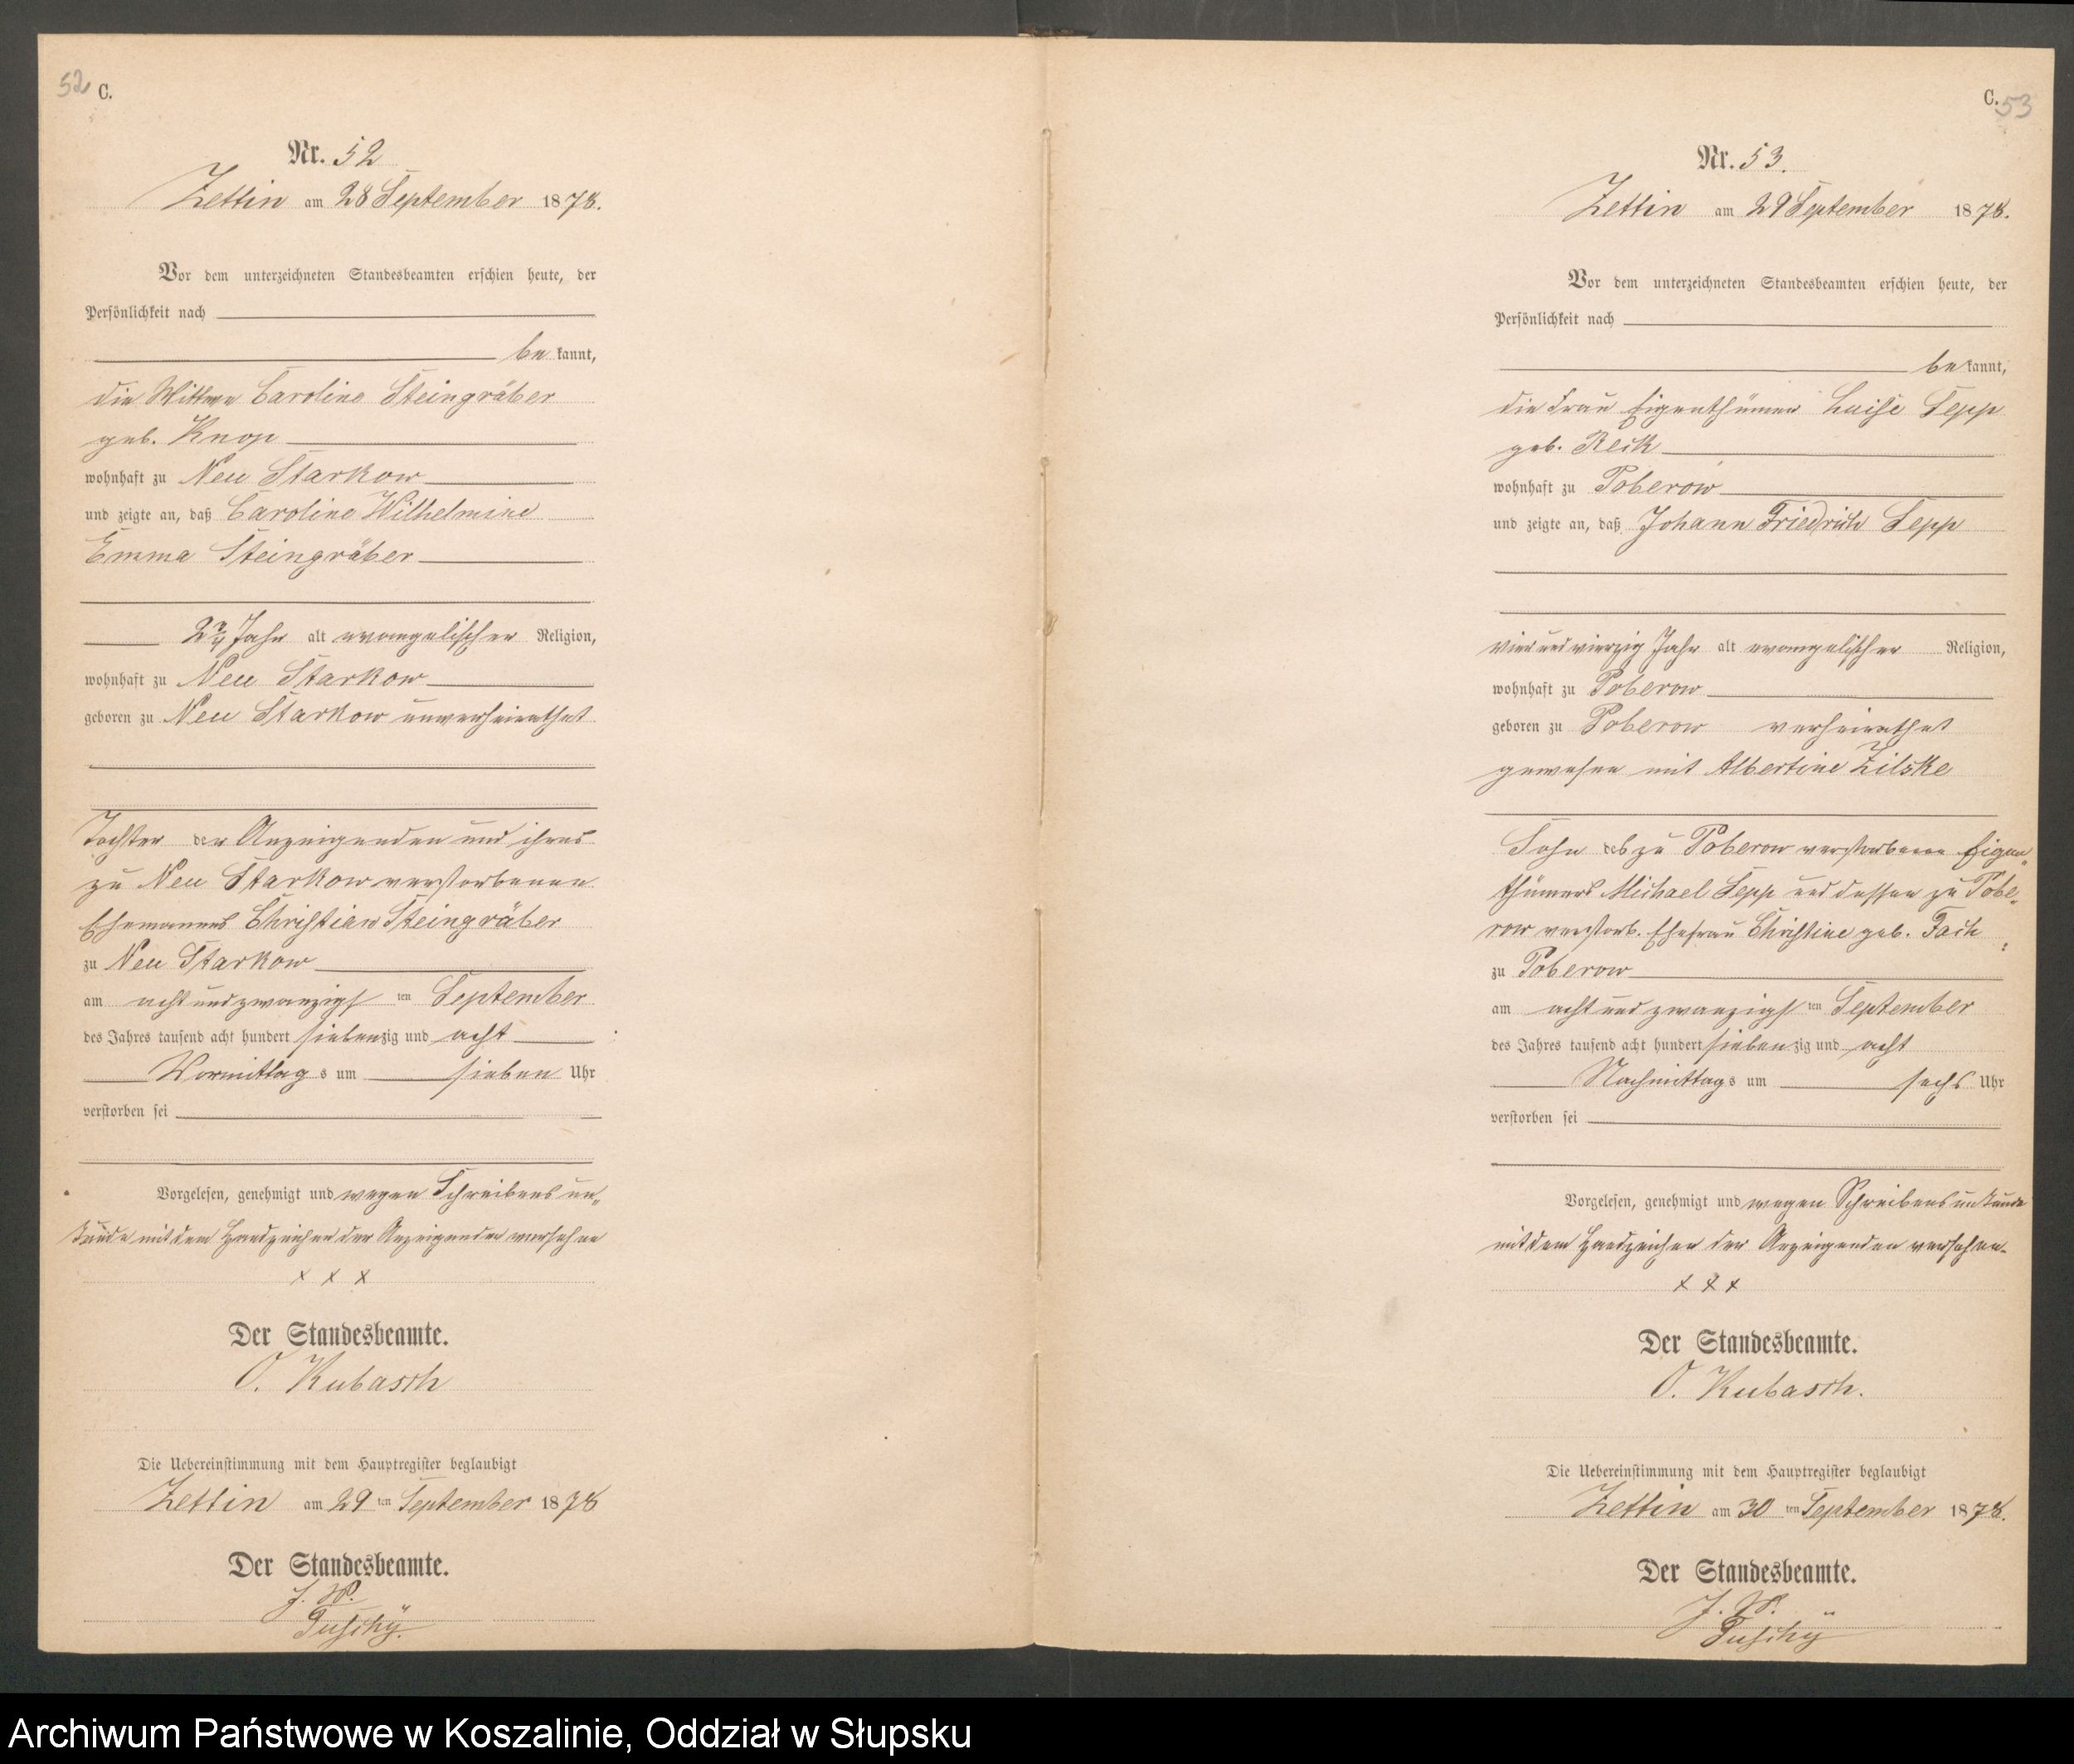 52 C.
Nr. 52
Zettin am 28 September 1878.
Vor dem unterzeichneten Standesbeamten erschien heute, der
Persönlichkeit nach
be kannt,
die Wittwe Caroline Steingräber
geb. Knop
wohnhaft zu Neu Starkow
und zeigte an, daß Caroline Wilhelmine
Emma Steingräber
Jahr alt evangelischer Religion,
wohnhaft zu Neu Starkow
geboren zu Neu Starkow unverheirathet
Tochter der Anzeigenden und ihres
zu Neu Starkow verstorbenen
Ehemannes Christian Steingräber
zu Neu Starkow
am acht und zwanzigs ten September
des Jahres tausend acht hundert siebenzig und acht
Vormittag s um sieben Uhr
verstorben sei
Vorgelesen, genehmigt und wegen Schreibensun„
kunde mit dem Handzeichen der Anzeigenden versehen
x x x
Der Standesbeamte.
O. Kubasch
Die Uebereinstimmung mit dem Hauptregister beglaubigt
Zettin am 29 ten September 1878
Der Standesbeamte.
J. V.
C. 53
Nr. 53.
Zettin am 29 September 1878.
Vor dem unterzeichneten Standesbeamten erschien heute, der
Persönlichkeit nach
be kannt,
die Frau Eigenthümer Luise Sepp
geb. Reik
wohnhaft zu Poberow
und zeigte an, daß Johann Friedrich Sepp
vier und vierzig Jahr alt evangelischer Religion,
wohnhaft zu Poberow
geboren zu Poberow verheirathet
gewesen mit Albertine Zilske
Sohn des zu Poberow verstorbenen Eigen„
thümers Michael Sepp und dessen zu Pobe„
row verstorb. Ehefrau Christine geb.
zu Poberow
am acht und zwanzigs ten September
des Jahres tausend acht hundert siebenzig und acht
Nachmittag s um sechs Uhr
verstorben sei
Vorgelesen, genehmigt und wegen Schreibensunkunde
mit dem Handzeichen der Anzeigenden versehen.
x x x
Der Standesbeamte.
O. Kubasch.
Die Uebereinstimmung mit dem Hauptregister beglaubigt
Zettin am 30 ten September 1878.
Der Standesbeamte.
J. V.
Archiwum Państwowe w Koszalinie, Oddział w Słupsku